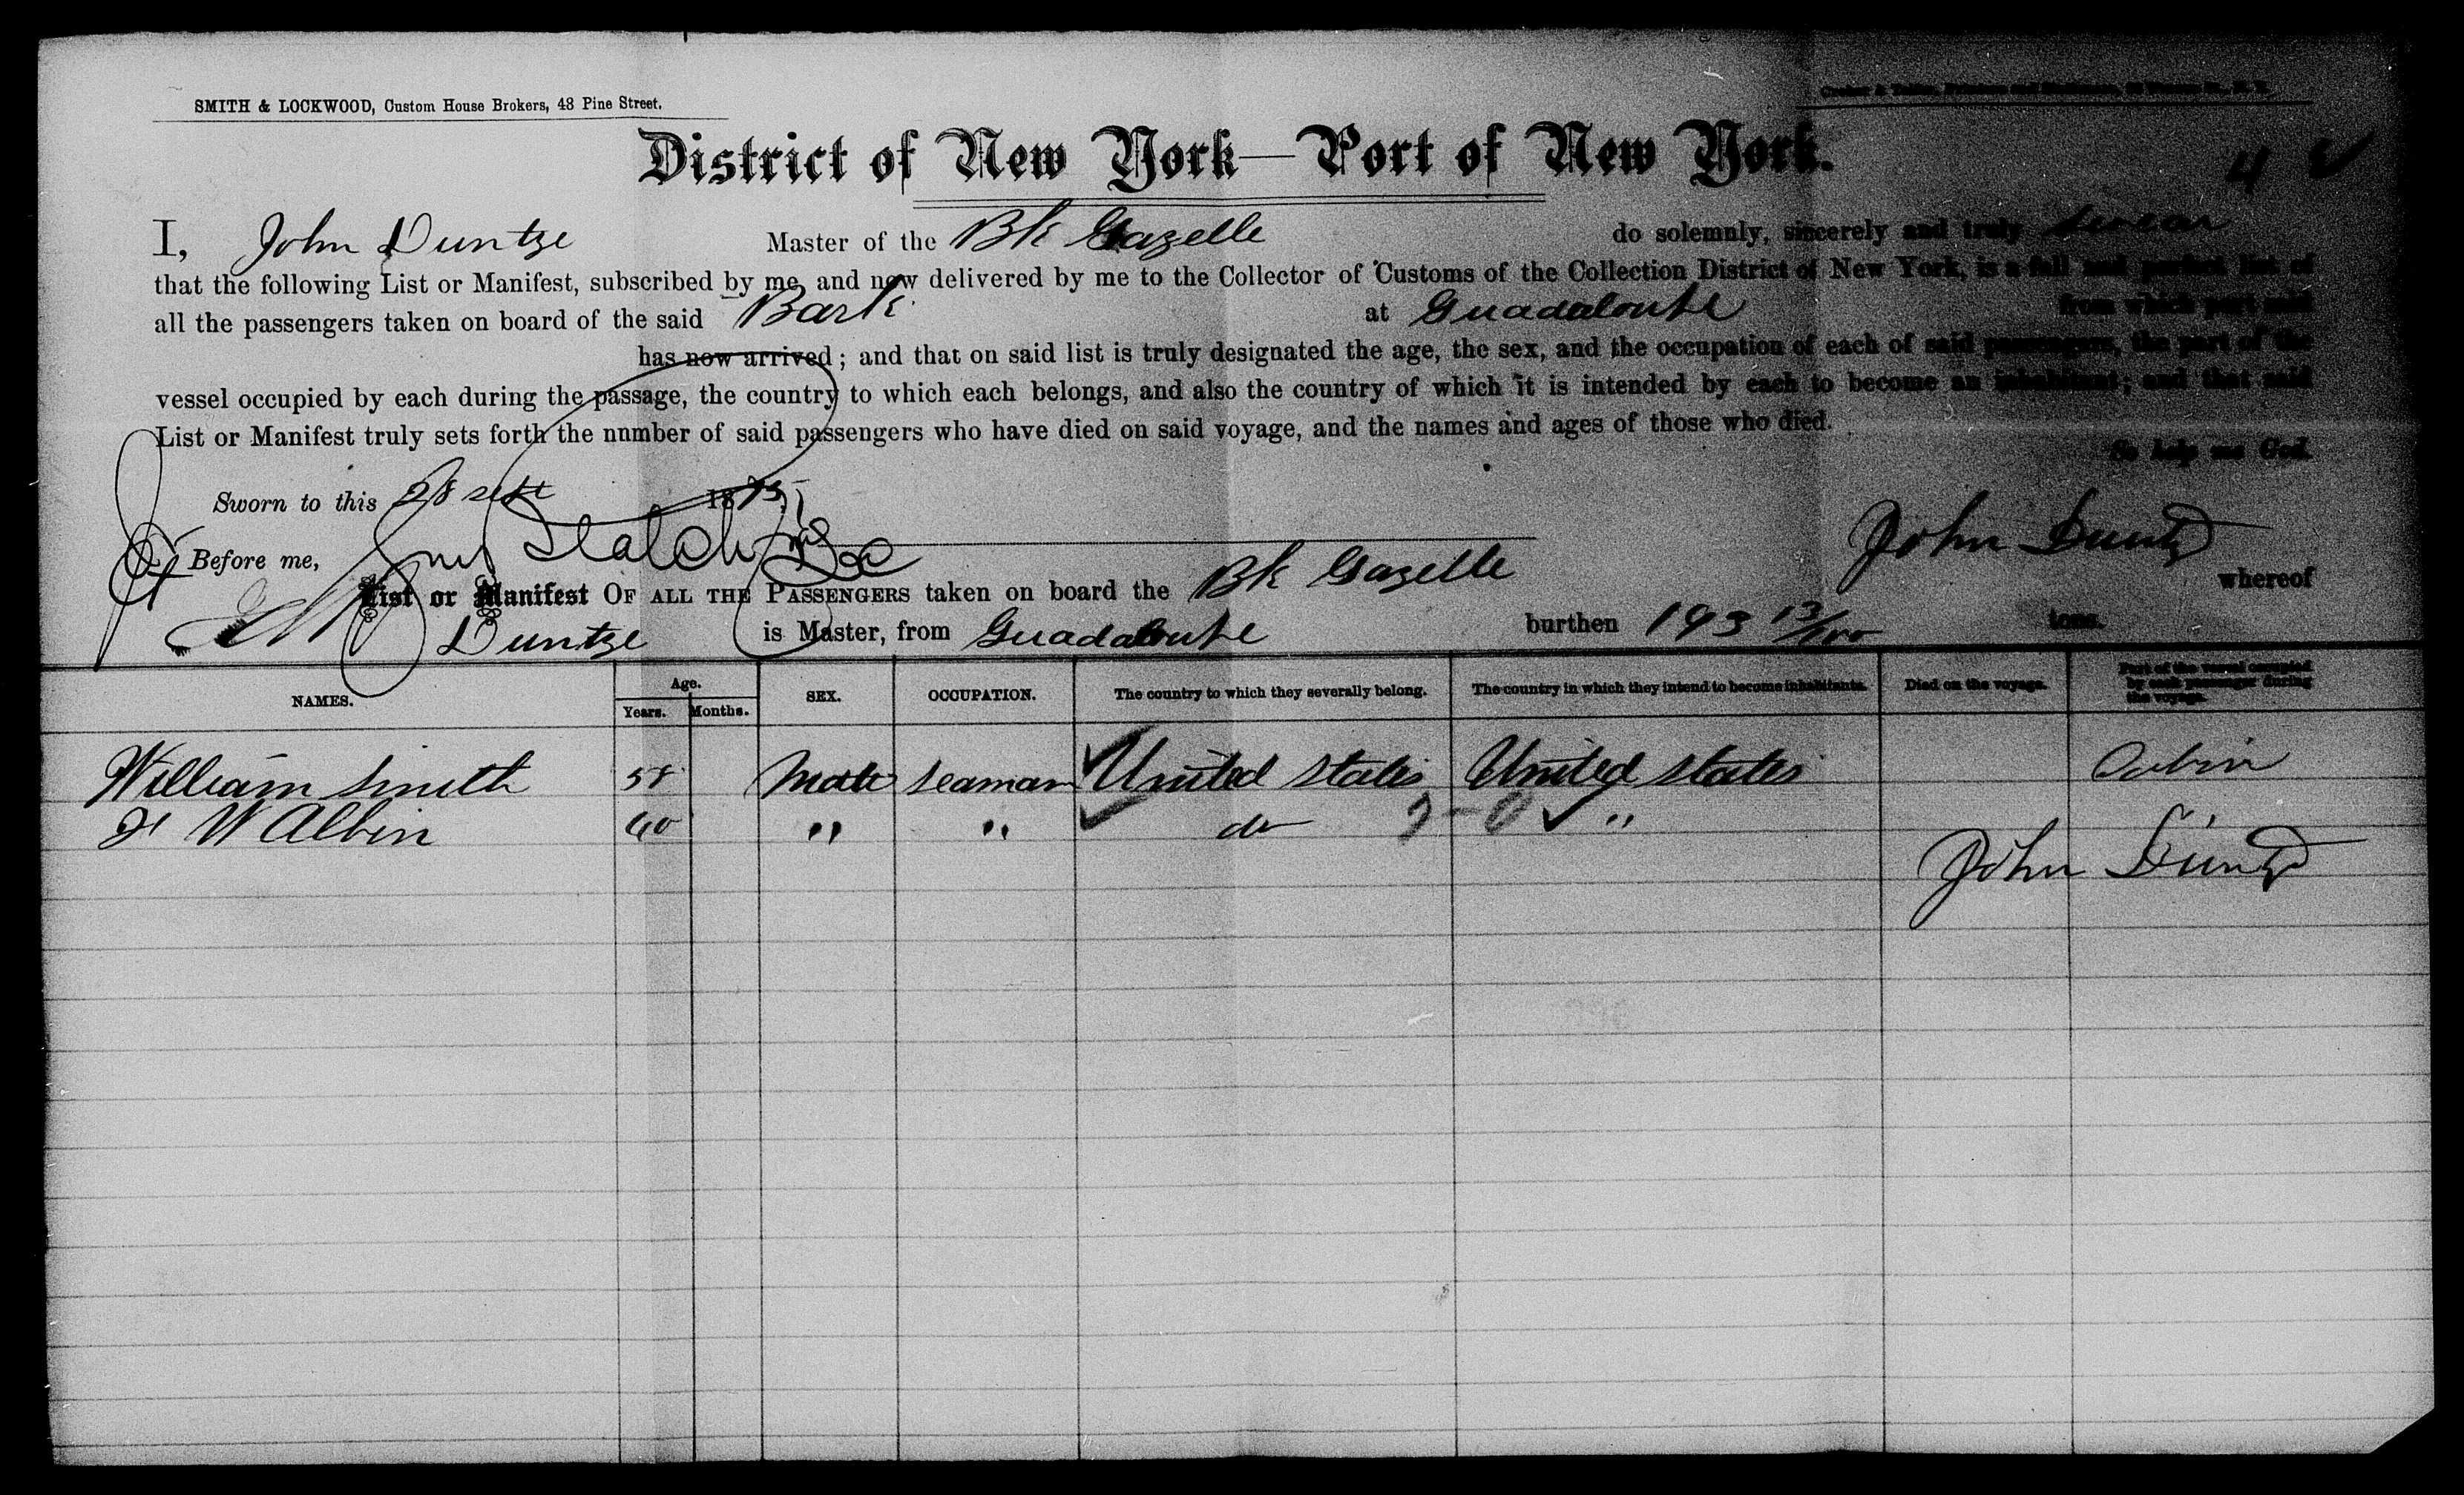 SMITH & LOCKWOOD, Custom House Brokers, 48 Pine Street.
District of New York—Port of New York.
4
I, John Duntze Master of the Bk Gazelle do solemnly, sincerely and truly swear
that the following List or Manifest, subscribed by me, and now delivered by me to the Collector of Customs of the Collection District of New York, is a full and perfect list of
all the passengers taken on board of the said Bark at Guadaloupe from which port said
has now arrived; and that on said list is truly designated the age, the sex, and the occupation of each of said passengers, the part of the
vessel occupied by each during the passage, the country to which each belongs, and also the country of which it is intended by each to become an inhabitant; and that said
List or Manifest truly sets forth the nnmber of said passengers who have died on said voyage, and the names and ages of those who died.
So help me God.
Sworn to this 28 Sept 1875
John Duntze
Before me,
List or Manifest OF ALL THE PASSENGERS taken on board the Bk Gazelle whereof
Duntze is Master, from Guadaloupe burthen 193 13/100 tons.
NAMES. Age. Years. Months. SEX. OCCUPATION. The country to which they severally belong. The country in which they intend to become inhabitants. Died on the voyage. Part of the vessel occupied by each passenger during the voyage.
William Smith 58 Male Seaman United States United States Cabin
W Albin 40 " " do "
John Duntze